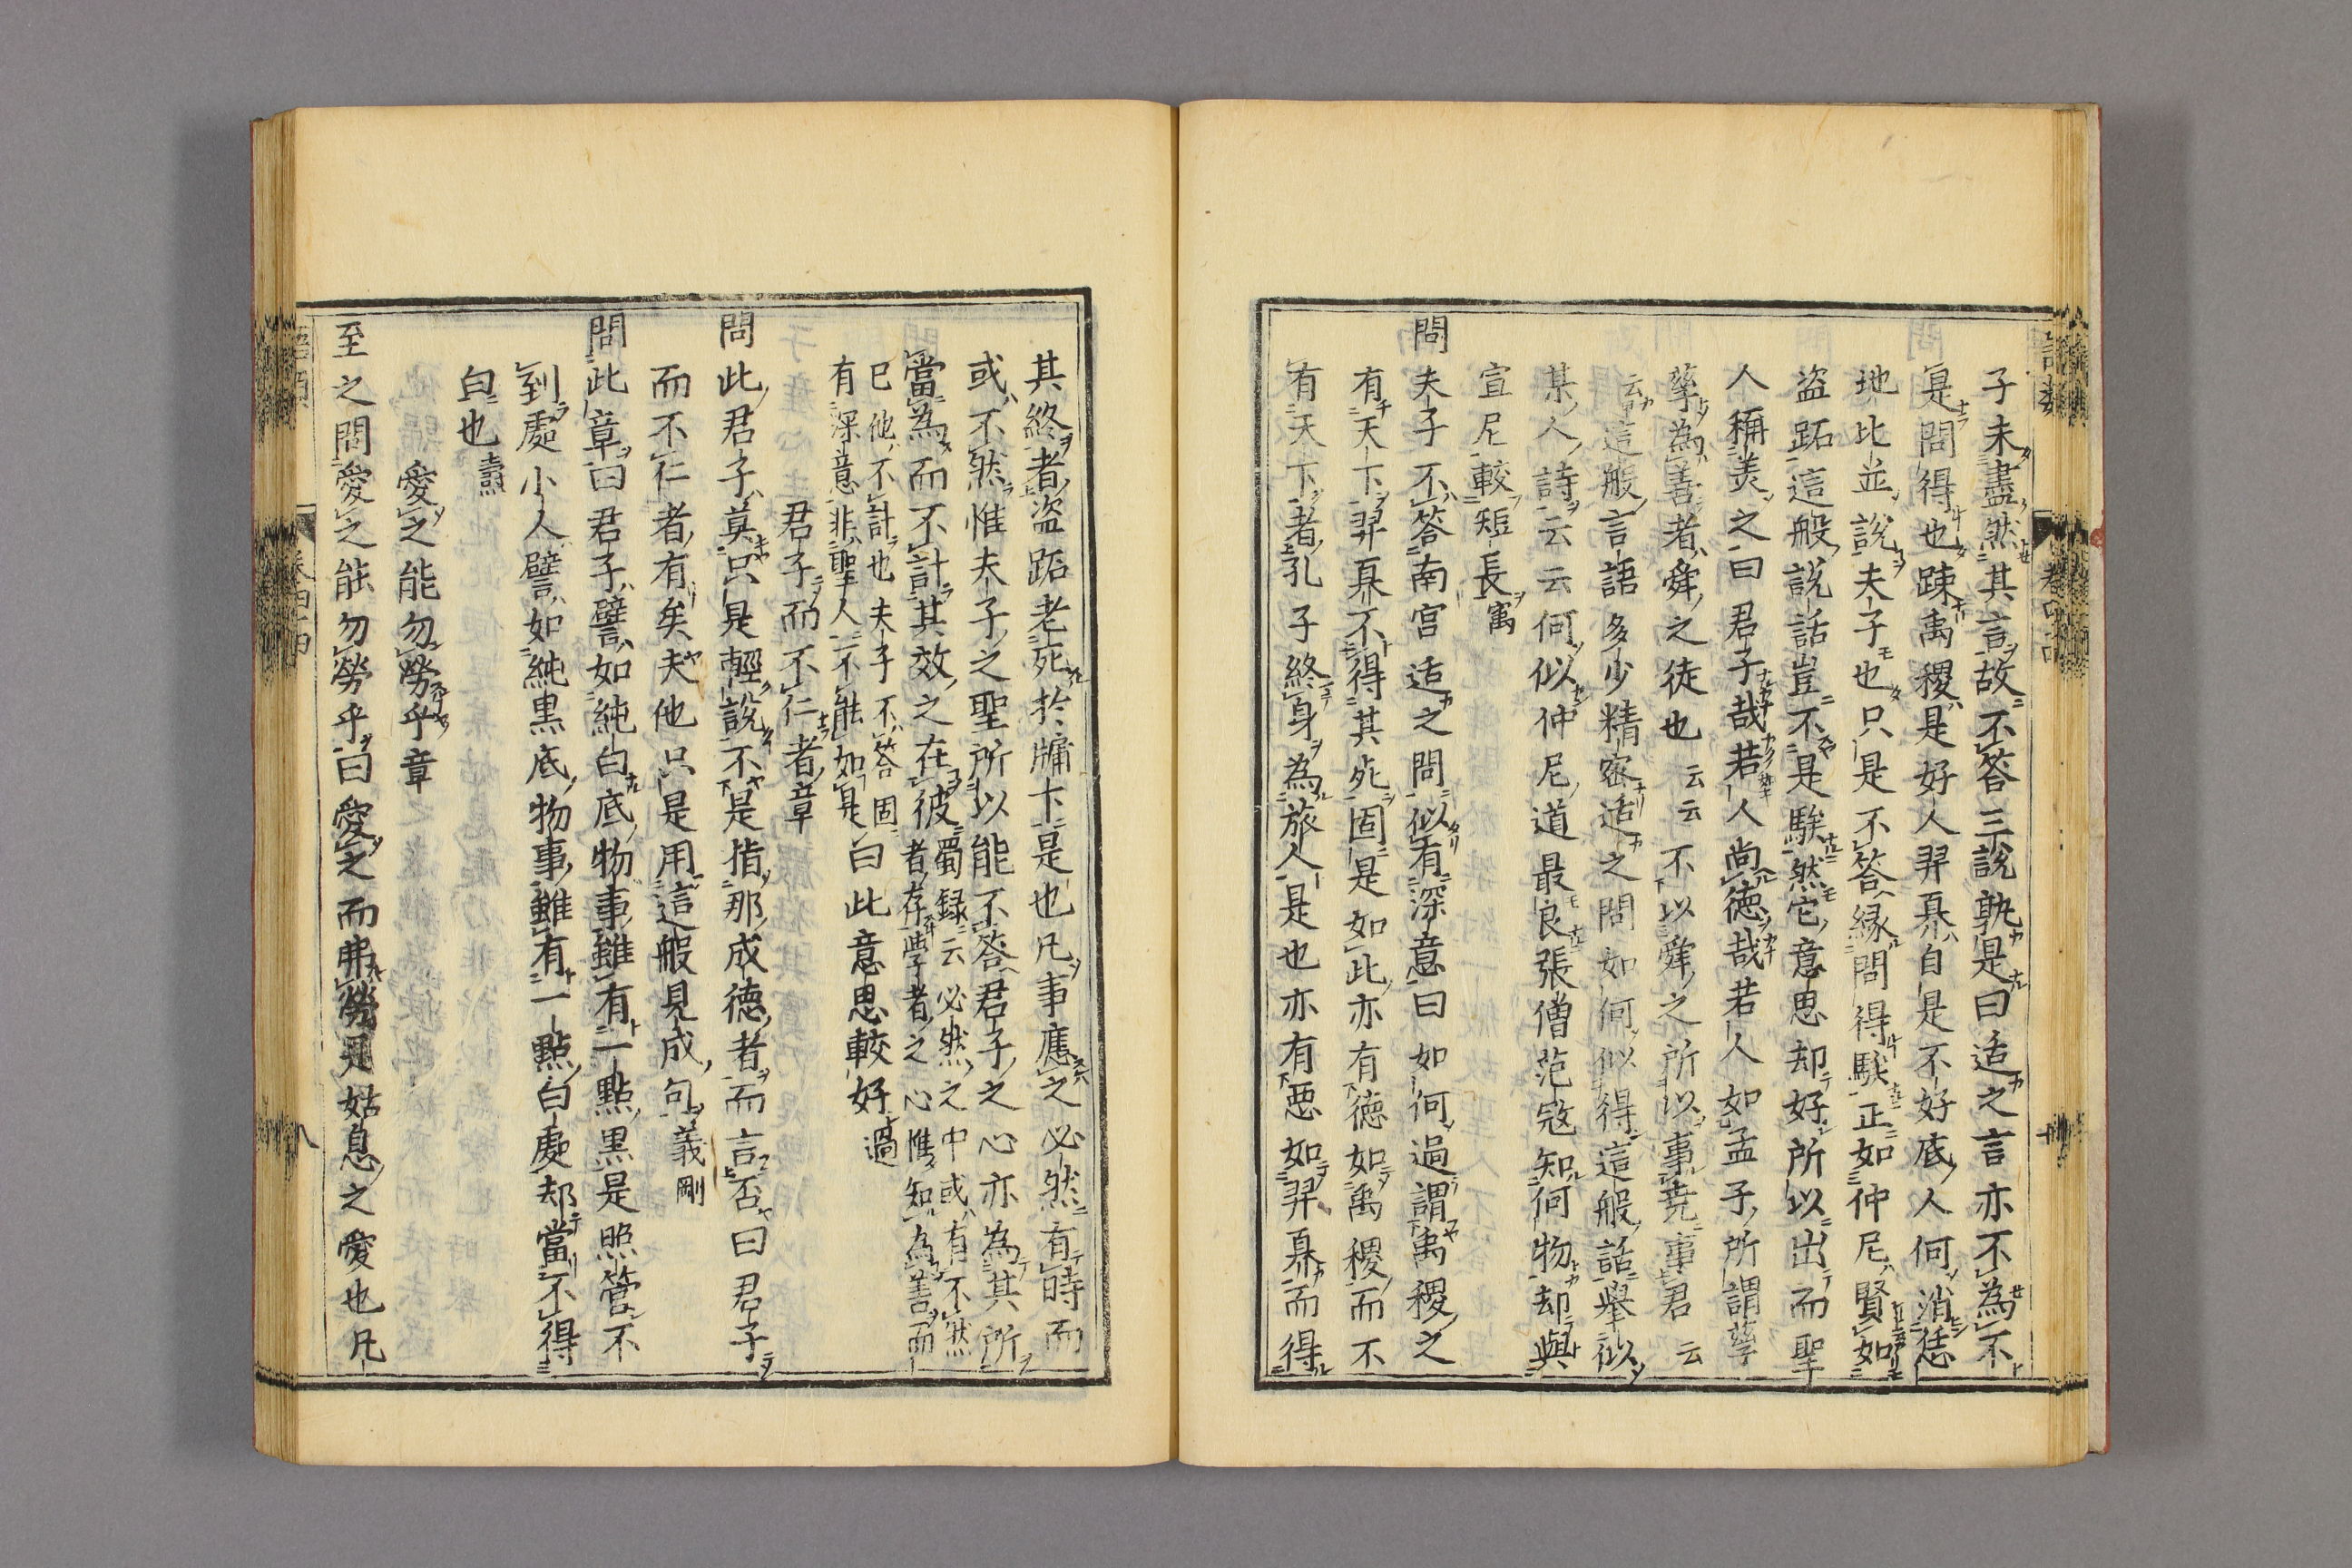 子未盡然其言故不答三說孰是曰适之言亦不為不
是問得也踈禹稷是好人羿奡自是不好底人何消恁
地比並說夫子也只是不答緣問得騃正如仲尼賢如
盜跖這般說話豈不是騃然它意思却好所以出而聖
人稱美之曰君子哉若人尚德哉若人如孟子所謂孳
孳為善者舜之徒也云云不以舜之所以事堯事君云
云這般言語多少精密适之問如何似得這般話舉似
某人詩云云何似仲尼道最良張僧范寇知何物却與
宣尼較短長㝢
問夫子不答南宮适之問似有深意曰如何過謂禹稷之
有天下羿奡不得其死固是如此亦有德如禹稷而不
有天下者孔子終身為旅人是也亦有惡如羿奡而得
其終者盜跖老死於牖下是也凡事應之必然有時而
或不然惟夫子之聖所以能不答君子之心亦為其所
當為而不計其效之在彼蜀錄云必然之中或有不然
者存學者之心惟知為善而
已他不計也夫子不答固
有深意非聖人不能如是曰此意思較好過
君子而不仁者章
問此君子莫只是輕說不是指那成德者而言否曰君子
而不仁者有矣夫他只是用這般見成句義剛
問此章曰君子譬如純白底物事雖有一點黑是照管不
到處小人譬如純黑底物事雖有一點白處却當不得
白也燾
愛之能勿勞乎章
至之問愛之能勿勞乎曰愛之而弗勞是姑息之愛也凡
卷四十四
八